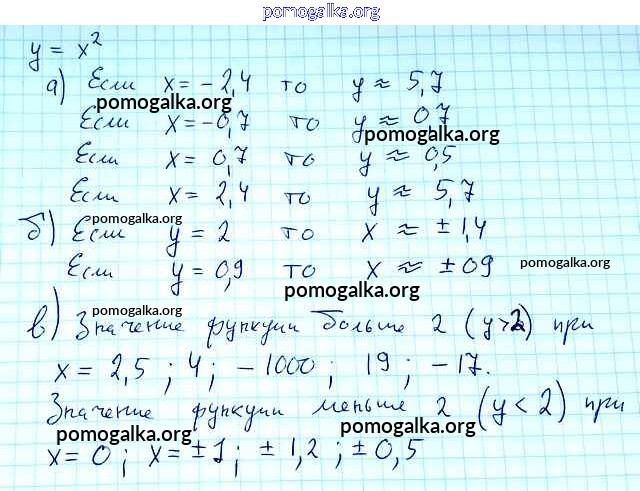 pomogalka.org
y = x²
а) Если x = -2,4 то y ≈ 5,7
pomogalka.org
Если x = -0,7 то y ≈ 0,7
pomogalka.org
Если x = 0,7 то y ≈ 0,5
Если x = 2,4 то y ≈ 5,7
pomogalka.org
б) Если y = 2 то x ≈ ± 1,4
Если y = 0,9 то x ≈ ± 0,9
pomogalka.org
pomogalka.org
pomogalka.org
в) Значение функции больше 2 (y > 2) при
x = 2,5 ; 4 ; - 1000 ; 19 ; - 17.
Значение функции меньше 2 (y < 2) при
pomogalka.org
pomogalka.org
x = 0 ; x = ± 1 ; ± 1,2 ; ± 0,5